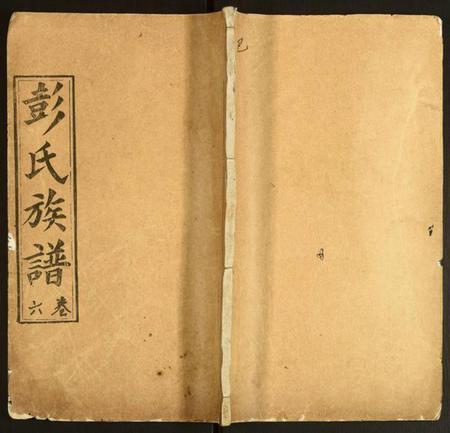 彭氏族譜
卷六
已